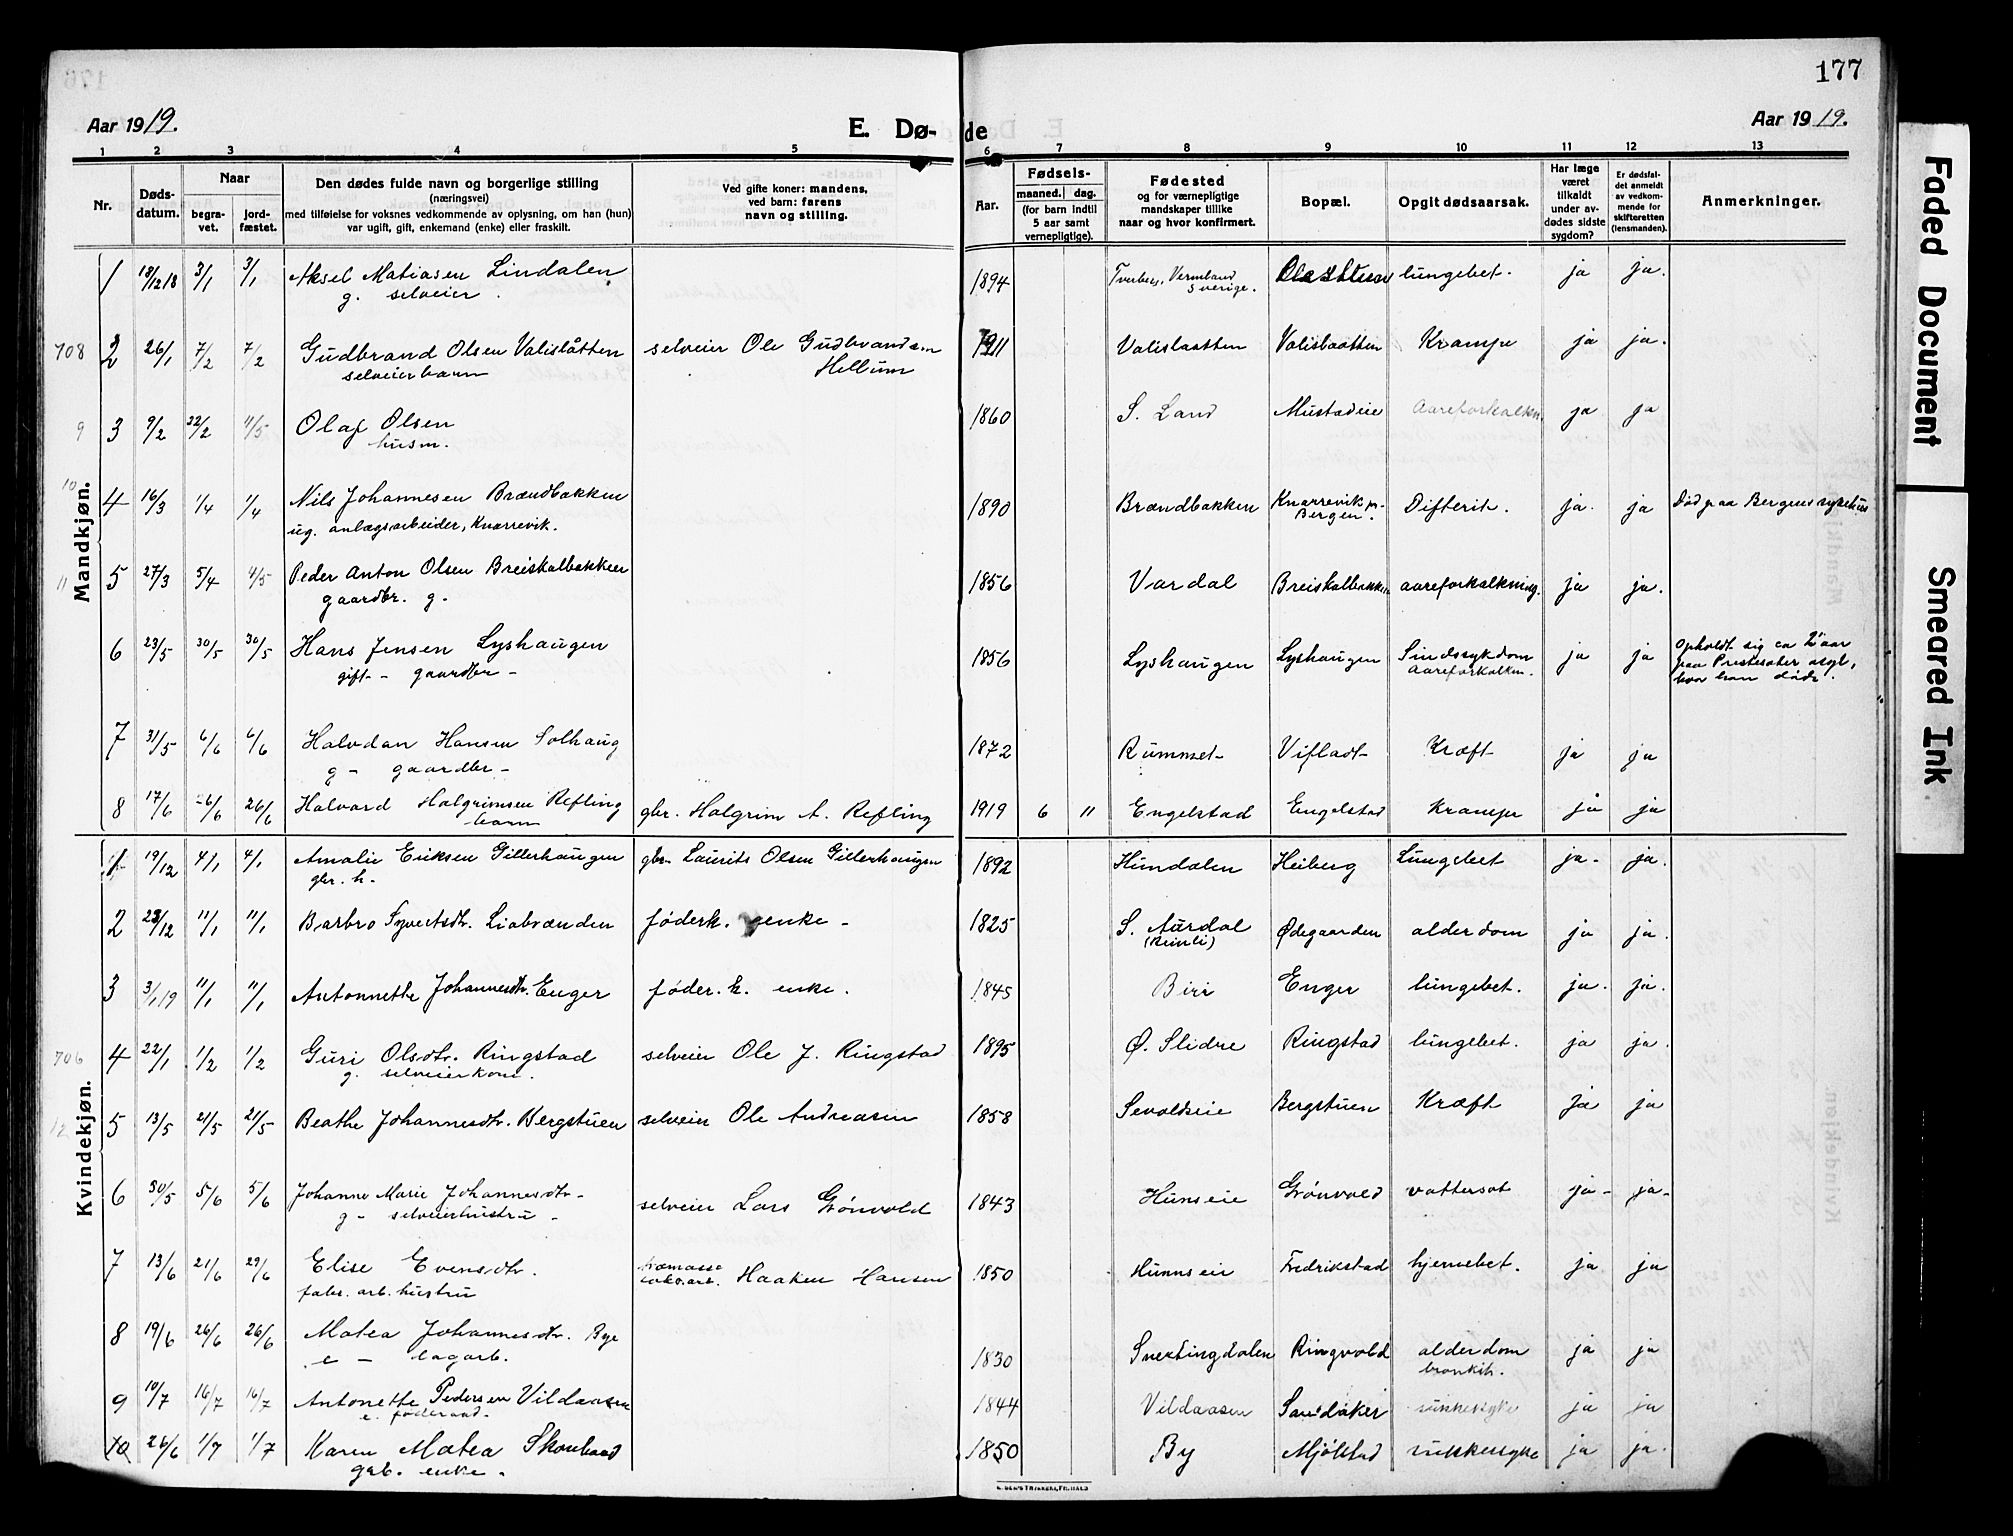 177
Aar 1919.
E. Dø-de
Aar 1919.
1 2 3 4 5 6 7 8 9 10 11 12 13
Nr.
Døds-datum.
Naar
begra-vet.
jord-fæstet.
Den dødes fulde navn og borgerlige stilling
(næringsvei)
med tilføielse for voksnes vedkommende av oplysning, om han (hun)
var ugift, gift, enkemand (enke) eller fraskilt.
Ved gifte koner: mandens,
ved barn: farens
navn og stilling.
Aar.
Fødsels-
maaned. dag.
(for barn indtil
5 aar samt
vernepligtige).
Fødested
og for værnepligtige
mandskaper tillike
naar og hvor konfirmert.
Bopæl.
Opgit dødsaarsak.
Har læge
været
tilkaldt
under av-
dødes sidste
sygdom?
Er dødsfal-
det anmeldt
av vedkom-
mende for
skifteretten
(lensmanden).
Anmerkninger.
Mandkjøn.
1 18/12 18 3/1 3/1 Aksel Matiasen Lindalen 1894 Vermland Sverige. lungebet. ja ja.
g. selveier.
708 2 26/1 7/2 7/2 Gudbrand Olsen Valislåtten selveier Ole Gudbrandsen Hellum 1911 Valislaatten Valislaatten Krampe ja ja.
selveierbarn
9 3 9/2 22/2 11/5 Olaf Olsen 1860 S. Land Mustadeie Aareforkalkn. ja ja
husm.
10 4 16/3 1/4 1/4 Nils Johannesen Brændbakken 1890 Brændbakken Knarrevik pr. Bergen. Difterit. ja. ja Død paa Bergens sykehus
ug. anlægsarbeider, Knarrevik.
11 5 27/3 5/4 4/5 Peder Anton Olsen Breiskalbakken 1856 Vardal Breiskalbakken aareforkalkning. ja ja.
gaardbr. g.
6 23/5 30/5 30/5 Hans Jensen Lyshaugen 1856 Lyshaugen Lyshaugen Sindssykdom Aareforkalkn. ja ja Opholdt sig ca 2 aar
paa Presteseter asyl,
hvor han døde.
gift - gaardbr -
7 31/5 6/6 6/6 Halvdan Hansen Solhaug 1872 Rummet Vifladt Kræft ja ja
g - gaardbr -
8 17/6 26/6 26/6 Halvard Halgrimsen Refling gbr. Halgrim A. Refling 1919 6 11 Engelstad Engelstad Krampe ja ja
barn
Kvindekjøn.
1 19/12 4/1 4/1 Amalie Eriksen Gillerhaugen gbr. Laurits Olsen Gillerhaugen 1892 Hundalen Heiberg Lungebet ja - ja.
gbr. h.
2 23/12 11/1 11/1 Barbro Syvertsdtr. Liabrænden føderk. enke - 1825 S. Aurdal (Reinli) Ødegaarden alderdom ja ja.
3 3/1 19 11/1 11/1 Antonnette Johannesdtr. Enger føder. k. enke. 1845 Biri Enger lungebet. ja. ja.
706 4 22/1 1/2 1/2 Guri Olsdtr. Ringstad selveier Ole J. Ringstad 1895 Ø. Slidre Ringstad lungebet. ja ja.
g. selveierkone.
12 5 13/5 21/5 21/5 Beathe Johannesdtr. Bergstuen selveier Ole Andreasen 1858 Sevaldseie Bergstuen Kræft ja ja
6 30/5 5/6 5/6 Johanne Marie Johannesdtr - selveier Lars Grønvold 1843 Hunseie Grønvold vattersot ja - ja -
g - selveierhustru -
7 13/6 21/6 29/6 Elise Evensdtr. Haaken Hansen 1850 Hunnseie Fredrikstad hjernebet. ja ja
fabr. arb. hustru
8 19/6 26/6 26/6 Matea Johannesdtr. Bye 1830 Snertingdalen Ringvold alderdom bronkit. ja ja
e - dagarb.
9 10/7 16/7 16/7 Antonette Pedersen Vildaasen 1844 Vildaasen Sandaker sukkersyke ja ja
e. føderaad.
10 26/6 1/7 1/7 Karen Matea Skonhaad 1850 By Mjølstad sukkersyke ja ja.
grb. enke.
Faded Document
Smeared Ink